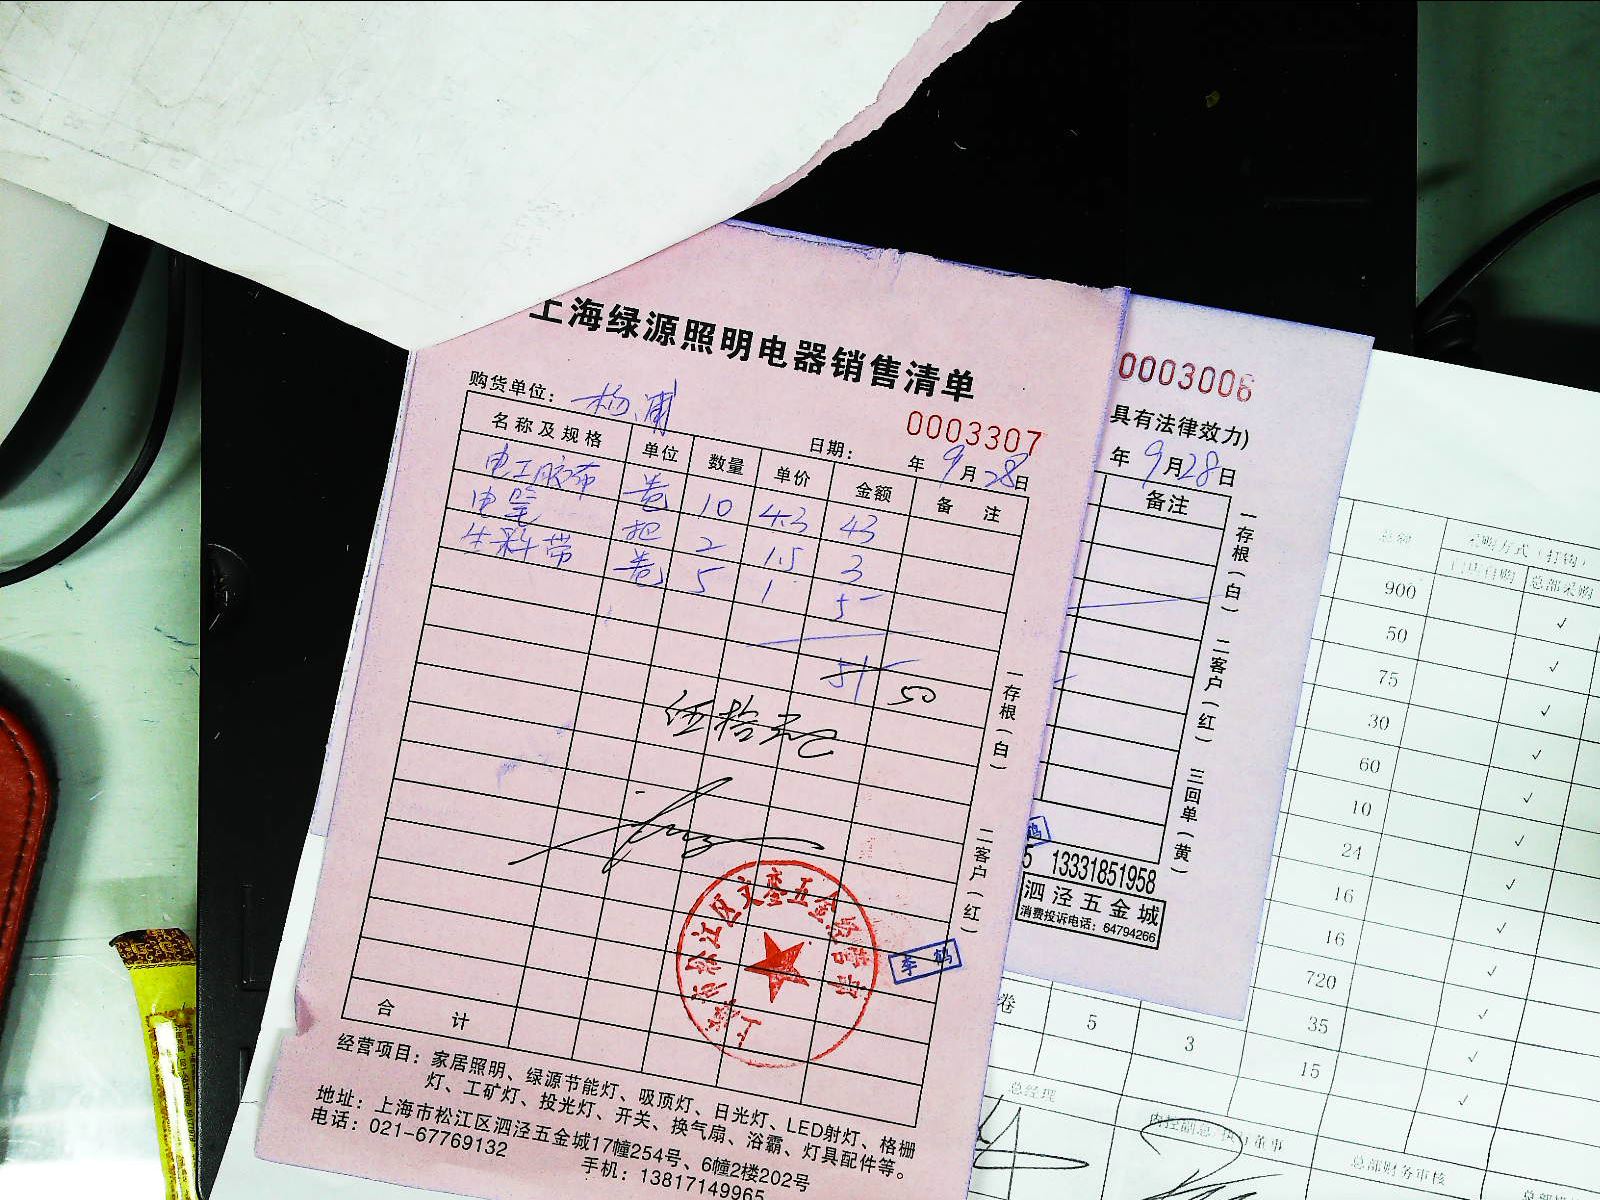 上海绿源照明电器销售清单
0003307
购货单位： 杨浦
日期： 年 9 月 28 日
名称及规格 单位 数量 单价 金额 备 注
电工胶布 卷 10 4.3 43
电笔 把 2 1.5 3
生料带 卷 5 1 5
51 50
伍拾元
合 计
一存根（白） 二客户（红）
李鸫
经营项目：家居照明、绿源节能灯、吸顶灯、日光灯、LED射灯、格栅
灯、工矿灯、投光灯、开关、换气扇、浴霸、灯具配件等。
地址：上海市松江区泗泾五金城17幢254号、6幢2楼202号
电话：021-67769132
手机：13817149965
0003006
具有法律效力)
年 9 月 28 日
备注
一存根（白） 二客户（红） 三回单（黄）
5 13331851958
泗泾五金城
消费投诉电话：64794266
总额 采购方式（打钩）
门店自购 总部采购
900 ✓
50 ✓
75 ✓
30 ✓
60 ✓
10 ✓
24 ✓
16 ✓
16 ✓
720 ✓
35 ✓
卷 5 3 15 ✓
总经理
总部财务审核